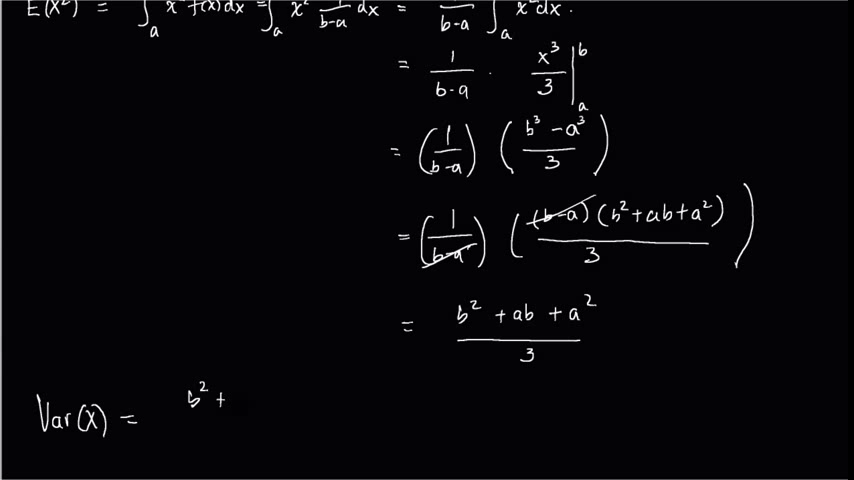 E(X²) = ∫ₐ x² f(x) dx = ∫ₐ x² 1/(b-a) dx = 1/(b-a) ∫ₐ x² dx.
= 1/(b-a) · x³/3 |ₐᵇ
= (1/(b-a)) ((b³ - a³)/3)
= (1/(b-a)) ((b-a)(b² + ab + a²)/3)
= (b² + ab + a²)/3
Var(X) = b² +